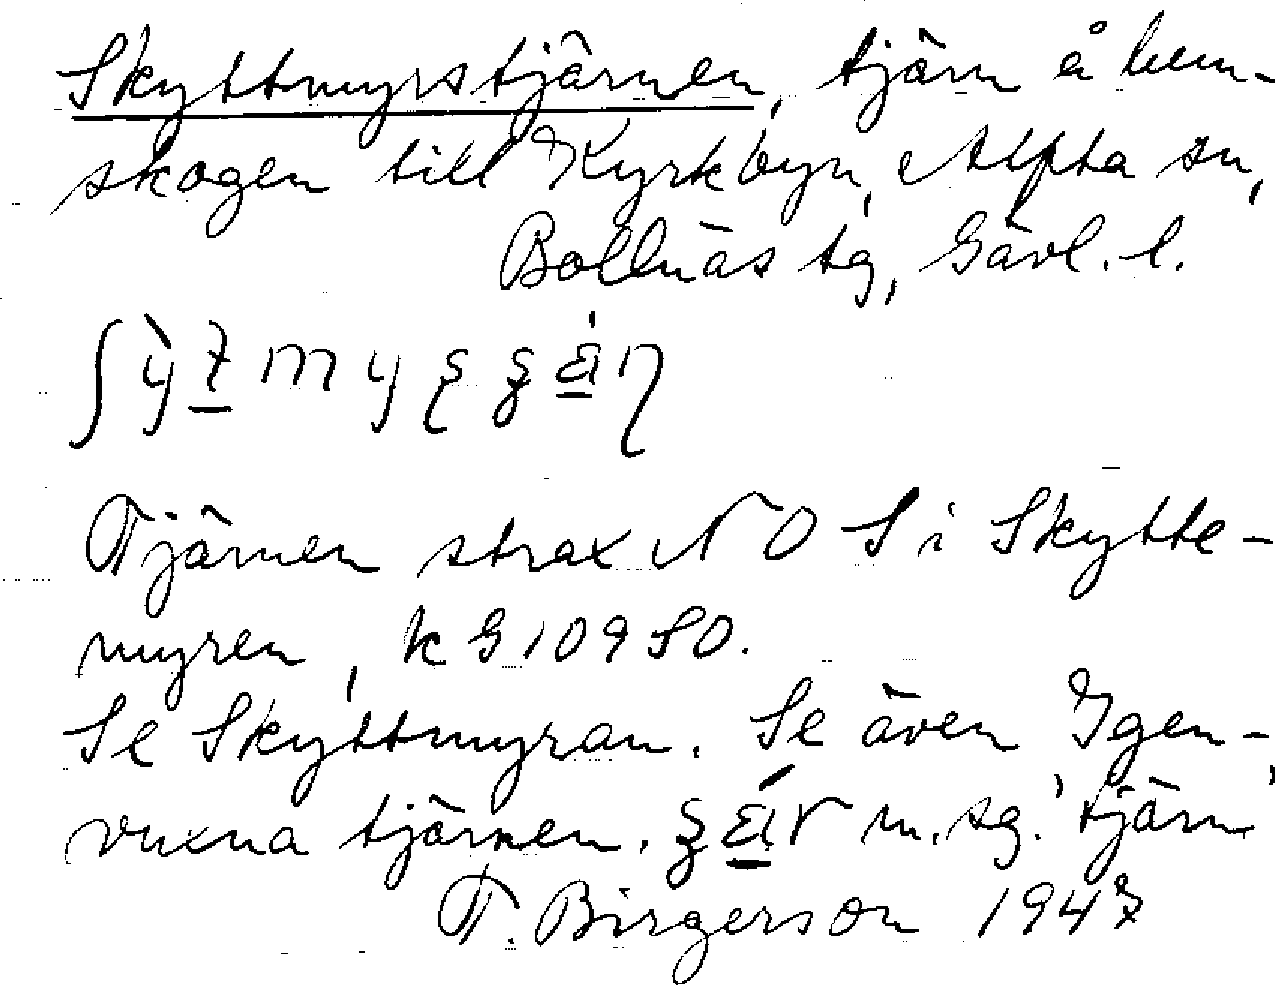 Skyttmyrstjärnen, tjärn å hem-
skogen till Kyrkbyn, Alfta sn,
Bollnäs tg, Gävl. l.
Tjärnen strax NO S i Skytte-
myren, k G 109 SO.
Se Skyttmyran. Se även Igen-
vuxna tjärnen. m. sg. 'tjärn'
T. Birgerson 1947